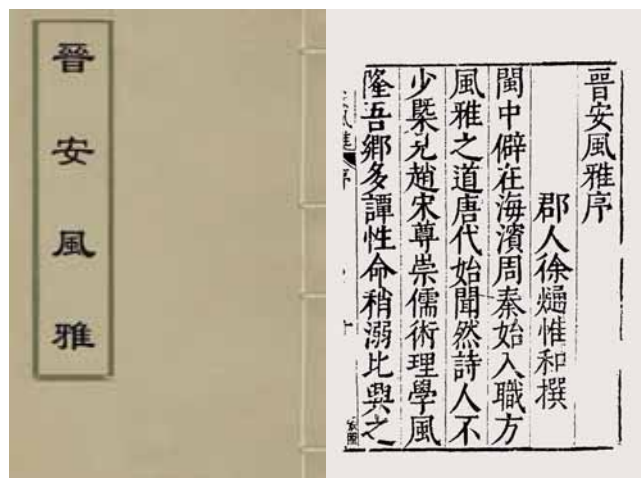 晉安風雅
晉安風雅序
郡人徐熥惟和撰
閩中僻在海濱周秦始入職方
風雅之道唐代始聞然詩人不
少槩見趙宋尊崇儒術理學風
隆吾鄉多譚性命稍溺比興之
序